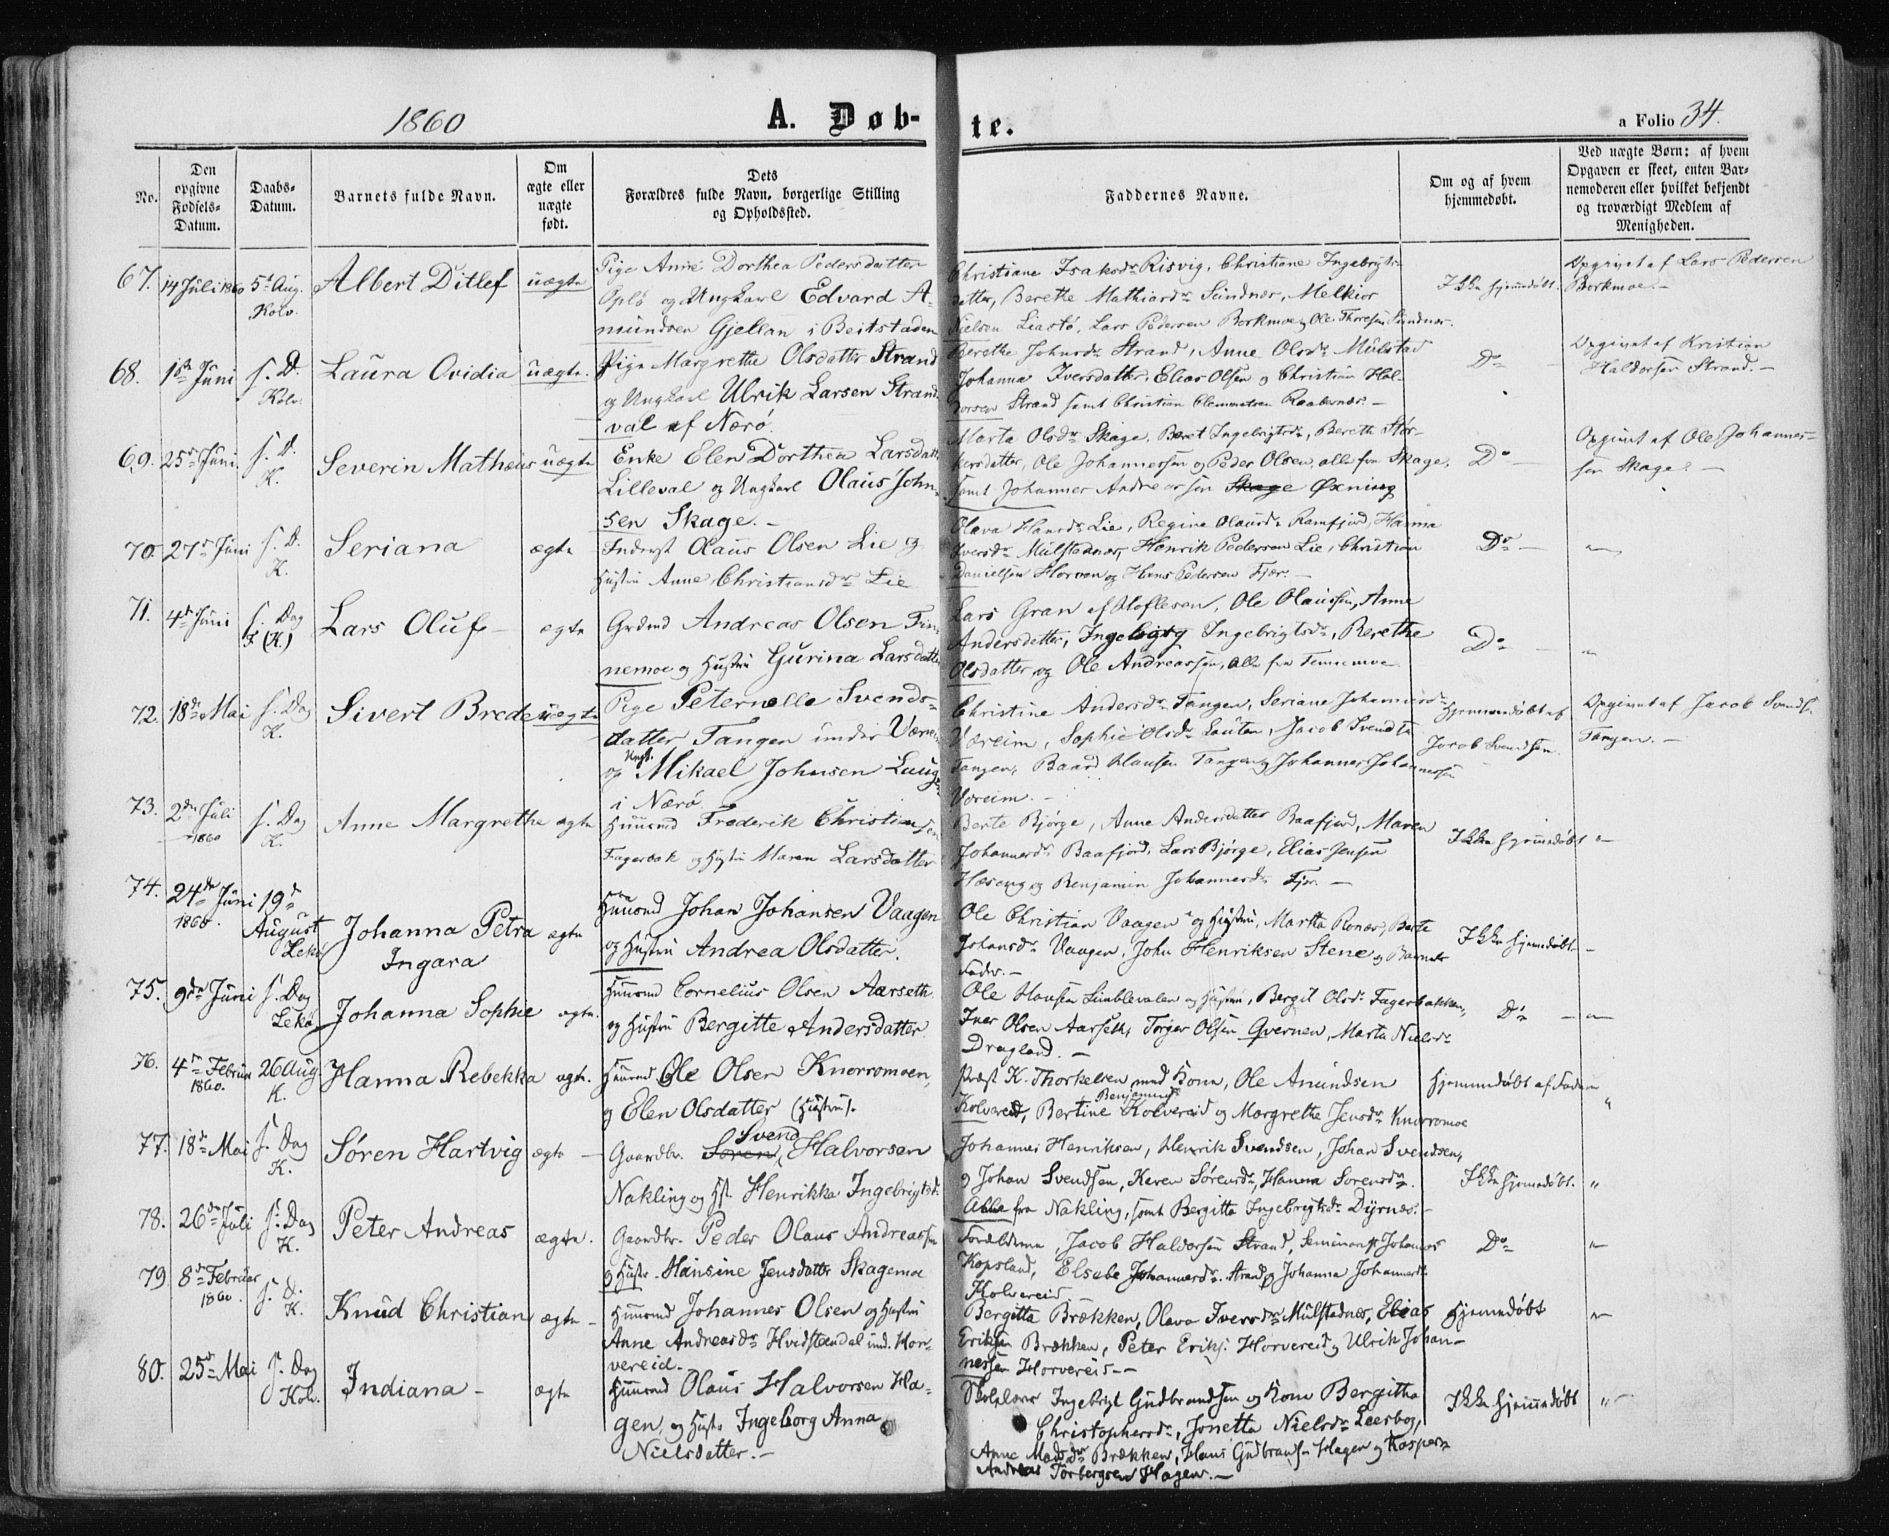 1860
A. Døb-
te.
a Folio 34.
No.
Den opgivne Fødsels-Datum.
Daabs-Datum.
Barnets fulde Navn.
Om ægte eller uægte født.
Dets Forældres fulde Navn, borgerlige Stilling og Opholdssted.
Faddernes Navne.
Om og af hvem hjemmedøbt.
Ved uægte Børn: af hvem Opgaven er skeet, enten Barnemoderen eller hvilket bekjendt og troværdigt Medlem af Menigheden.
67. 14 Juli 1860 5t Aug. Kolv. Albert Ditlef uægte
Pige Anne Dorthea Pedersdatter
Oplø og Ungkarl Edvard A-
mundsen Gjellan i Beitstaden
Christiane Isaksdr Risvig, Christiane Ingebrigts-
datter, Berethe Mathiasdr Seindnæs, Melkior
Nielsen Liastø, Lars Pedersen Borkmo og Ole Thoresen Seindnæs.
Ikke hjemmedøbt.
Opgivet af Lars Pedersen
Borkmoe.-
68. 1ste Juni s. D. Kolv. Laura Ovidia uægte.
Pige Margrethe Olsdatter Strand
og Ungkarl Ulrik Larsen Strand-
val af Nærø.
Berethe Johnsdr Strand, Anne Olsdr Mulstad
Johanna Iversdatter, Elias Olsen og Christian Hal-
dorsen Strand samt Christian Clemmetsen Raabernæs.-
Do
Opgivet af Kristian
Haldorsen Strand.-
69. 25de Juni s. D. K. Severin Mathæus uægte
Enke Elen Dorthea Larsdatt.
Lilleval og Ungkarl Olaus John-
sen Skage.-
Marta Olsdr Skage, Beret Ingebrigtsdr, Berethe Stor-
kersdatter, Ole Johannessen og Peder Olsen, alle fra Skage,
samt Johannes Andreassen Skage Øxning
Do
Opgivet af Ole Johannes-
sen Skage.-
70. 27de Juni s. D. K. Seriana ægte
Inderst Olaus Olsen Lie og
Hustru Anne Christiansdr Lie
Olava Hansdr Lie, Regine Olausdr Ramfjord, Hanna
Iversdr Mulstadnæs, Henrik Pedersen Lie, Christian
Danielsen Horven og Hans Pedersen Fjær.-
Do
71. 4de Juni s. Dag F (K.) Lars Oluf- ægte
Grdmd Andreas Olsen Fin-
nemoe og Hustru Gurina Larsdatter
Lars Gran af Hoflesen, Ole Olaussen, Anne
Andersdatter, Ingeborg Ingebrigtsdr, Berethe
Olsdatter og Ole Andreassen, alle fra Finnemoe
Do
72. 18de Mai s. Dag K. Sivert Brede uægte
Pige Peternelle Svends-
datter Tangen under Værem
og Ungk. Mikael Johnsen Laug-
i Nærø.
Christine Andersdr Tangen, Seriane Johannesdr
Væreim, Sophie Olsdr Lauten, Jacob Svendsen
Tangen, Baard Hansen Tangen og Johannes Johannessen
Væreim.-
Hjemmedøbt af
Jacob Svendsen.
Opgivet af Jacob Svends.
Tangen.-
73. 2den Juli 1860 s. Dag K. Anne Margrethe ægte
Huusmd Frederik Christiansen
Fagerbak og Hustru Maren Larsdatter
Berte Bjørge, Anne Andersdatter Baafjord, Maren
Johannesdr Baafjord, Lars Bjørge, Elias Jensen
Hæseng og Benjamin Johannesdr Fjer.-
Ikke hjemmedøbt
74. 24de Juni 1860. 19de August Lekø Johanna Petra ægte
Ingara
Huusmd Johan Johansen Vaagen
og Hustru Andrea Olsdatter.
Ole Christian Vaagen og Hustru, Martha Ronæs, Berte
Johansdr Vaagen, John Henriksen Stene og Barnets
Fader.-
Ikke hjemmedøbt-
75. 9de Juni s. Dag Lekø Johanna Sophie ægte.
Huusmd Cornelius Olsen Aarseth
og Hustru Bergitte Andersdatter.
Ole Hansen Limblevalen og Hustru, Bergit Olsdr Fagerbakken,
Iver Olsen Aarseth, Torger Olsen Qvernen, Marta Nielsdr
Dragland.-
Do
76. 4de Februar 1860. 26 Aug K. Hanna Rebekka ægte.
Huusmd Ole Olsen Knorromoen,
og Elen Olsdatter (Hustru).
Præst K. Thorkelsen med Kone, Ole Amundsen
Kolvereid, Bertine Benjamins Kolvereid og Margrethe Jensdr Knorromoe
Hjemmedøbt af Faderen
77. 18de Mai s. Dag K. Søren Hartvig ægte
Gaardbr. Søren Svend Halvorsen
Nakling og Hst. Henrikka Ingebrigtsd.
Johannes Henriksen, Henrik Svendsen, Johan Svendsen,
og Johan Svendsen, Karen Sørensdr, Hanna Sørensdr.
Alle fra Nakling, samt Bergitta Ingebrigtsdr Dyrnæs.-
Ikke hjemmedøbt.
78. 26de Juli s. Dag K. Peter Andreas ægte.
Gaardbr. Peder Olaus Andreassen
og Hustr. Hansine Jensdatter Skagemoe
Forældrene, Jacob Haldorsen Strand, Seminarist Johannes
Kopsland, Elsebe Johannesdr. Strand og Johanna Johannesdr.
Kolvereid
Do
79. 8de Februar 1860. s. D. K. Knud Christian ægte
Huusmd Johannes Olsen og Hustru
Anne Andreasdr Hvidsteendal und. Hor-
vereid.
Bergitta Brækken, Olava Iversdr Mulstadnæs, Elias
Eriksen Brækken, Peter Eriks. Horvereid og Ulrik Johan-
nessen Horvereid.-
Hjemmedøbt
80. 25de Mai s. Dag Kolv. Indiana- ægte
Huusmd Olaus Halvorsen Ha-
gen, og Hustr Ingeborg Anna
Nielsdatter.-
Skolelærer Ingebrigt Gudbrandsen og Kone Bergitha
Christophersdr, Jonetta Nielsdr Leerbog,
Anne Madsdr Brækken, Hans Gudbrands. Hagen og Kasper
Andreas Torbergsen Hagen.-
Ikke hjemmedøbt